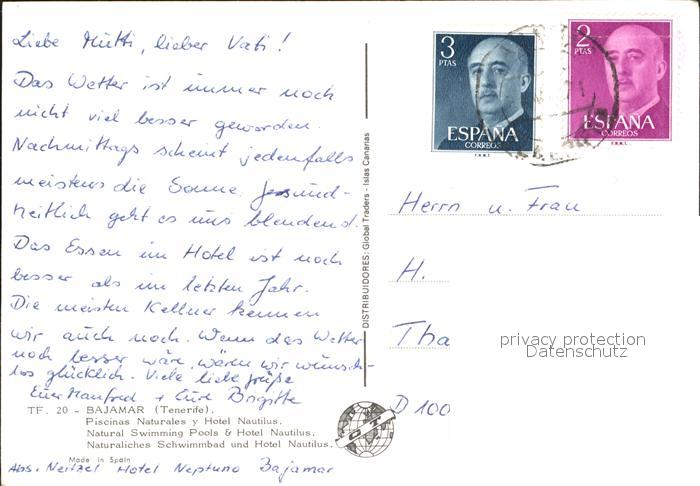 Liebe Mutti, lieber Vati!
Das Wetter ist immer noch
nicht viel besser geworden.
Nachmittags scheint jedenfalls
meistens die Sonne. Gesund-
heitlich geht es uns blendend.
Das Essen im Hotel ist noch
besser als im letzten Jahr.
Die meisten Kellner kennen
wir auch noch. Wenn das Wetter
noch besser wäre, wären wir wunsch-
los glücklich. Viele liebe Grüße
Euer Manfred + Eure Brigitte
TF. 20 - BAJAMAR (Tenerife).
Piscinas Naturales y Hotel Nautilus.
Natural Swimming Pools & Hotel Nautilus.
Naturaliches Schwimmbad und Hotel Nautilus.
Made in Spain
Abs. Neitzel Hotel Neptuno Bajamar
DISTRIBUIDORES: Global Traders - Islas Canarias
3
PTAS
ESPAÑA
CORREOS
F.N.M.T.
2
PTAS
ESPAÑA
CORREOS
F.N.M.T.
Herrn u. Frau
H.
Tha
D 100
privacy protection
Datenschutz